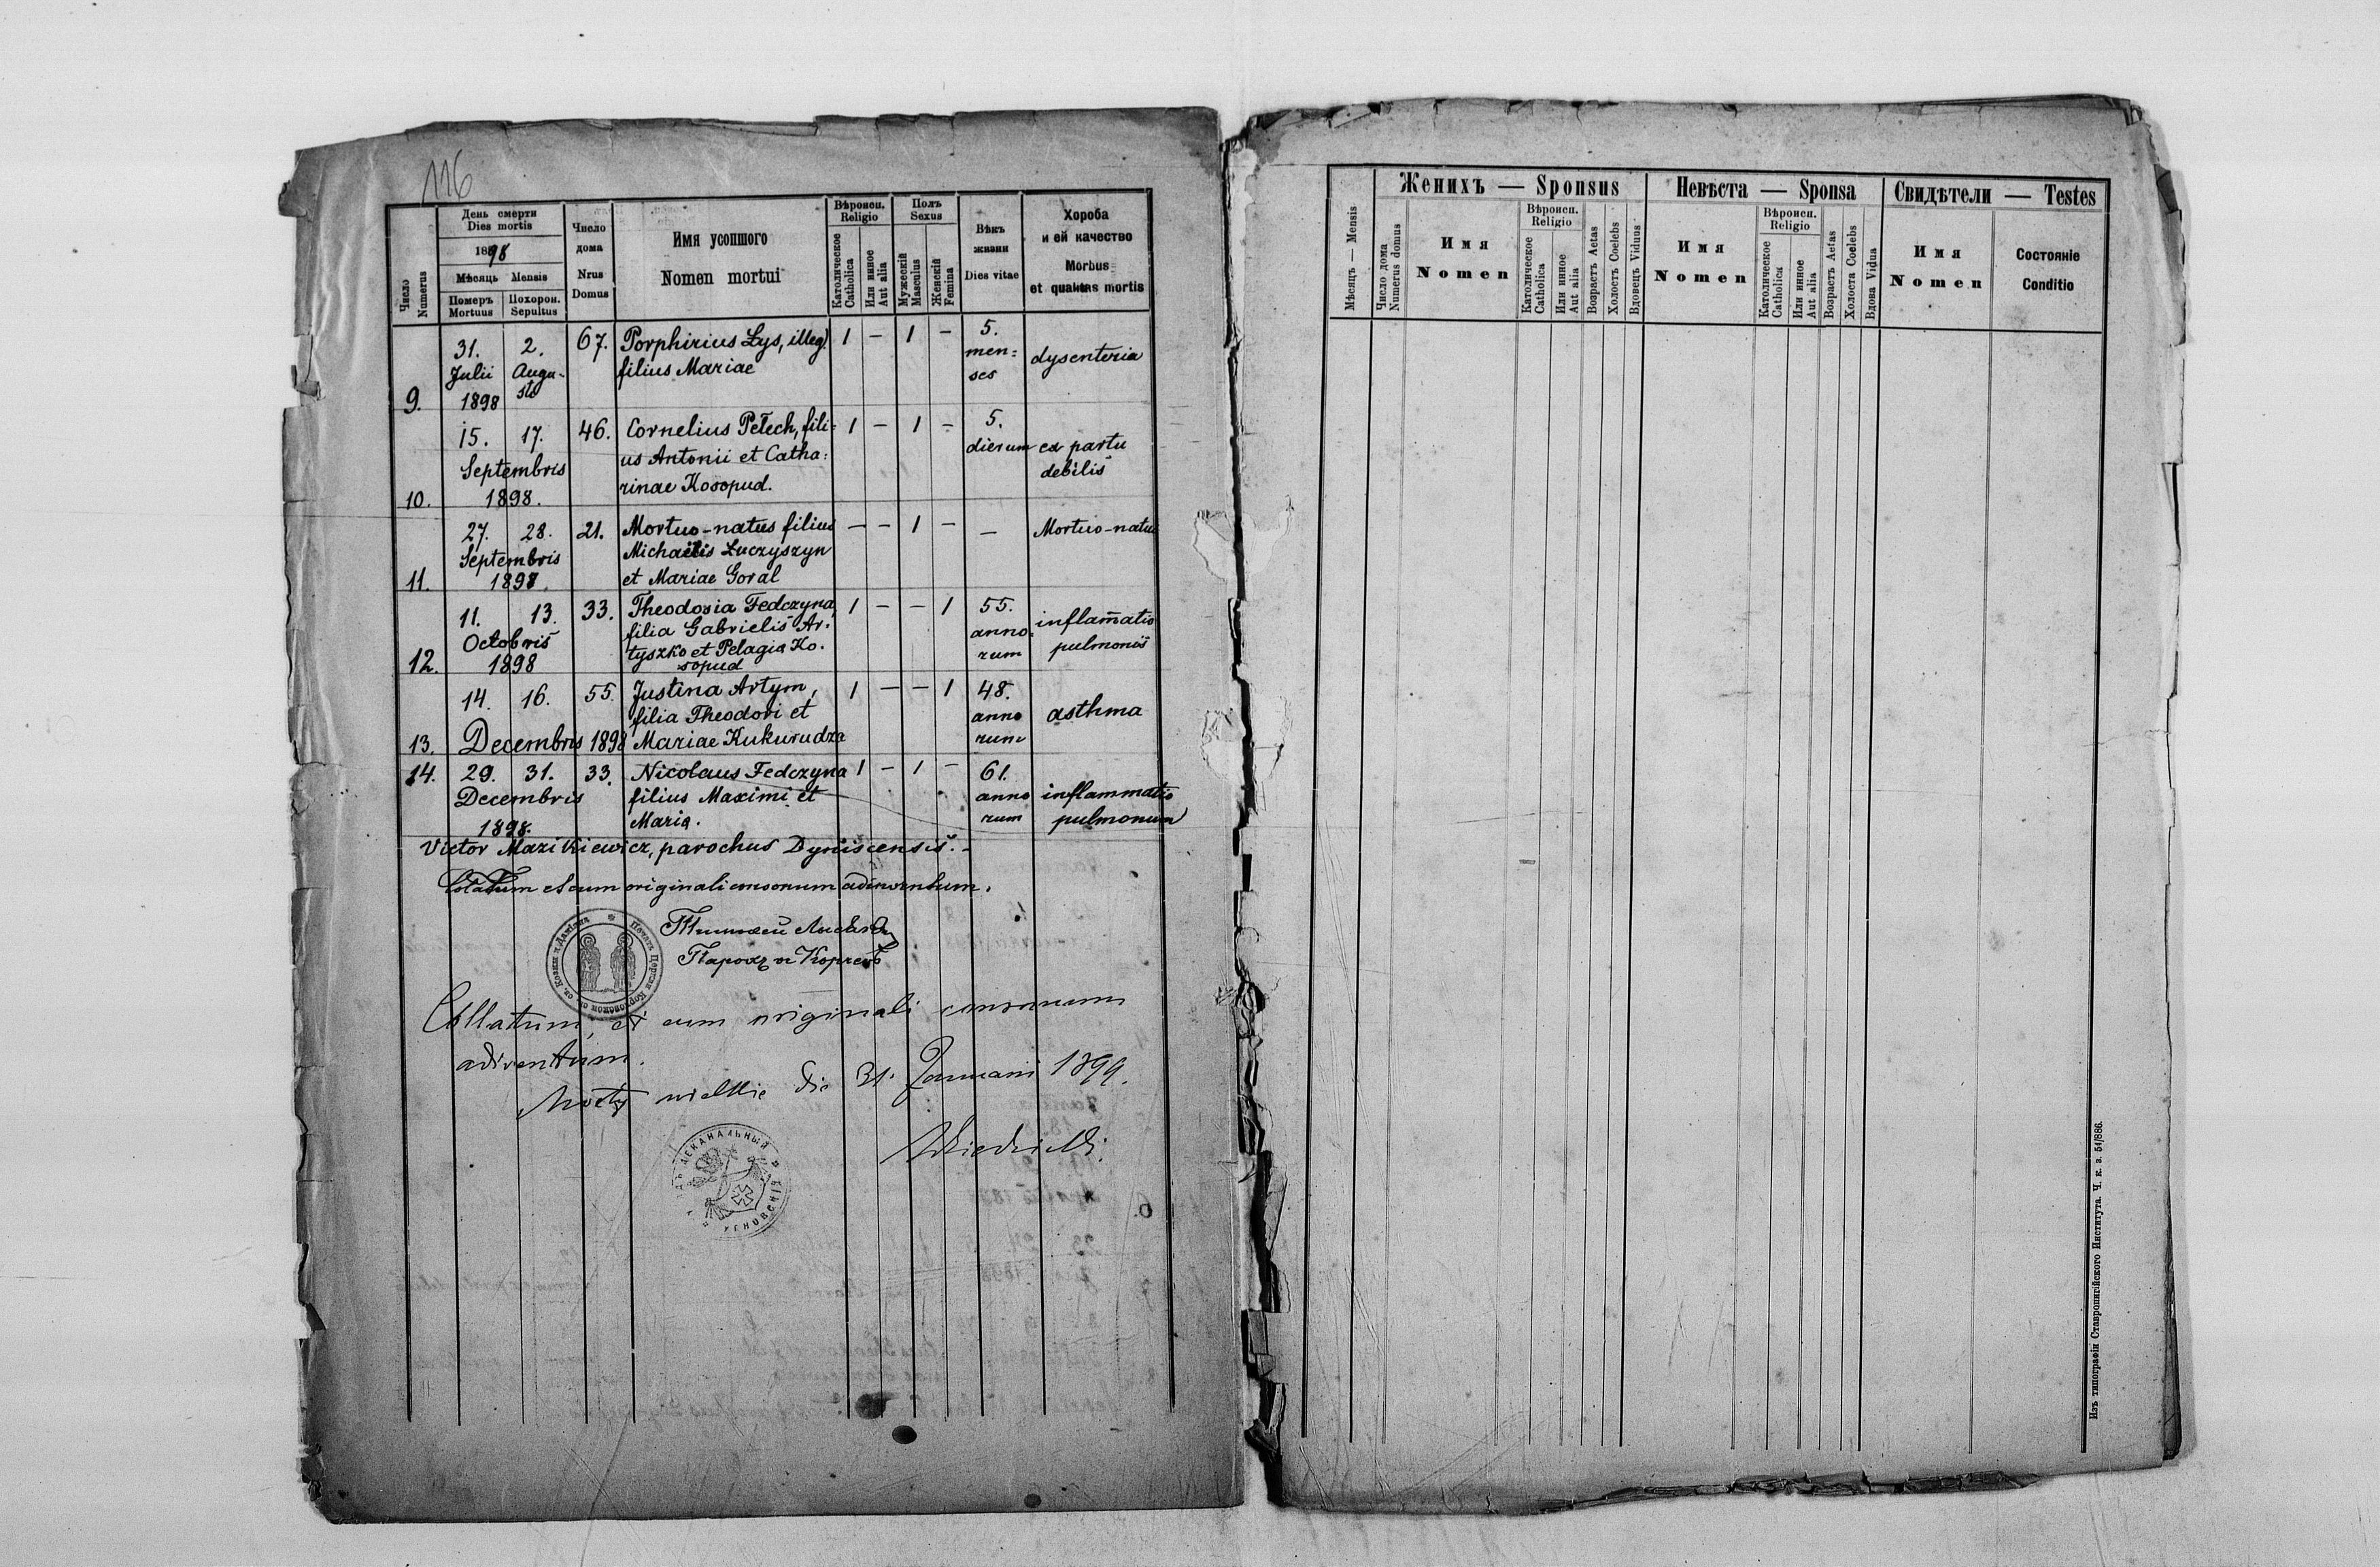 116
Число
Numerus
День смерти
Dies mortis
1898
Мѣсяць Mensis
Померъ
Mortuus
Похорон.
Sepultus
Число
дома
Nrus
Domus
Имя усопшого
Nomen mortui
Вѣроисп.
Religio
Католическое
Catholica
Или инное
Aut alia
Полъ
Sexus
Мужескій
Masculus
Женскій
Femina
Вѣкъ
жизни
Dies vitae
Хороба
и ей качество
Morbus
et qualitas mortis
9.
31.
Julii
1898
2.
Augu-
sti
67.
Porphirius Lys, illeg.
filius Mariae
1 — 1 —
5.
men=
ses
dysenteria
10.
15. 17.
Septembris
1898.
46.
Cornelius Pelech, fili=
us Antonii et Catha=
rinae Kosopud.
1 — 1 —
5.
dierum
ex partu
debilis
11.
27. 28.
Septembris
1898.
21.
Mortuo-natus filius
Michaelis Łuczyszyn
et Mariae Goral
— — 1 —
—
Mortuo-natus
12.
11. 13.
Octobris
1898
33.
Theodosia Fedczyna,
filia Gabrielis Ar=
tyszko et Pelagia Ko=
sopud
1 — — 1
55.
anno=
rum
inflam̄atio
pulmonis
13.
14. 16.
Decembris 1898
55.
Justina Artym,
filia Theodori et
Mariae Kukurudza
1 — — 1
48.
anno
rum
asthma
14.
29. 31.
Decembris
1898.
33.
Nicolaus Fedczyna
filius Maximi et
Maria.
1 — 1 —
61.
anno
rum
inflammatio
pulmonum
Victor Mazikiewicz, parochus Dyniscensis.
et cum originali consonum adinventum.
Парохъ
Collatum, et cum originali consonum
adventum.
wielkie die 31. Januarii 1899.
Мѣсяць — Mensis
Женихъ — Sponsus
Число дома
Numerus domus
Имя
Nomen
Вѣроисп.
Religio
Католическое
Catholica
Или инное
Aut alia
Возрастъ Aetas
Холостъ Coelebs
Вдовецъ Viduus
Невѣста — Sponsa
Имя
Nomen
Вѣроисп.
Religio
Католическое
Catholica
Или инное
Aut alia
Возрастъ Aetas
Холоста Coelebs
Вдова Vidua
Свидѣтели — Testes
Имя
Nomen
Состояніе
Conditio
Изъ типографіи Ставропигійского Института. Ч. к. з. 54/886.